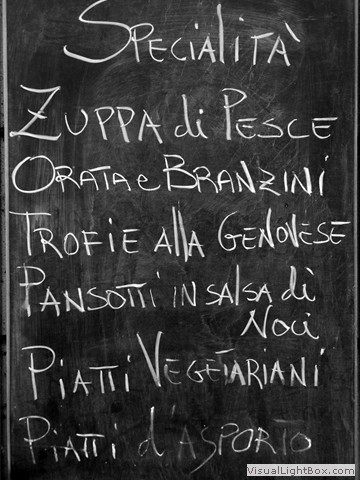 Specialità
Zuppa di Pesce
Orata e Branzini
Trofie alla Genovese
Pansotti in salsa di
Noci
Piatti Vegetariani
Piatti d'asporto
VisualLightBox.com